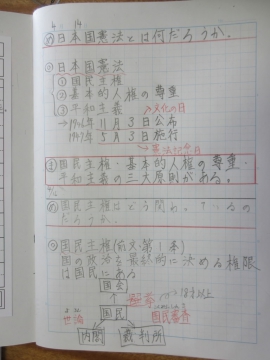 4. 14
め 日本国憲法とは何だろうか。
日本国憲法
① 国民主権
② 基本的人権の尊重
③ 平和主義
文化の日
→1946年11月3日公布
1947年5月3日施行
憲法記念日
ま 国民主権・基本的人権の尊重・
平和主義の三大原則がある。
め 国民主権はどう
だろうか。
国民主権(前文・第1条)
国の政治を最終的に決める権限
は国民にある
国会
選挙 18才以上
国民
世論
国民審査
内閣
裁判所